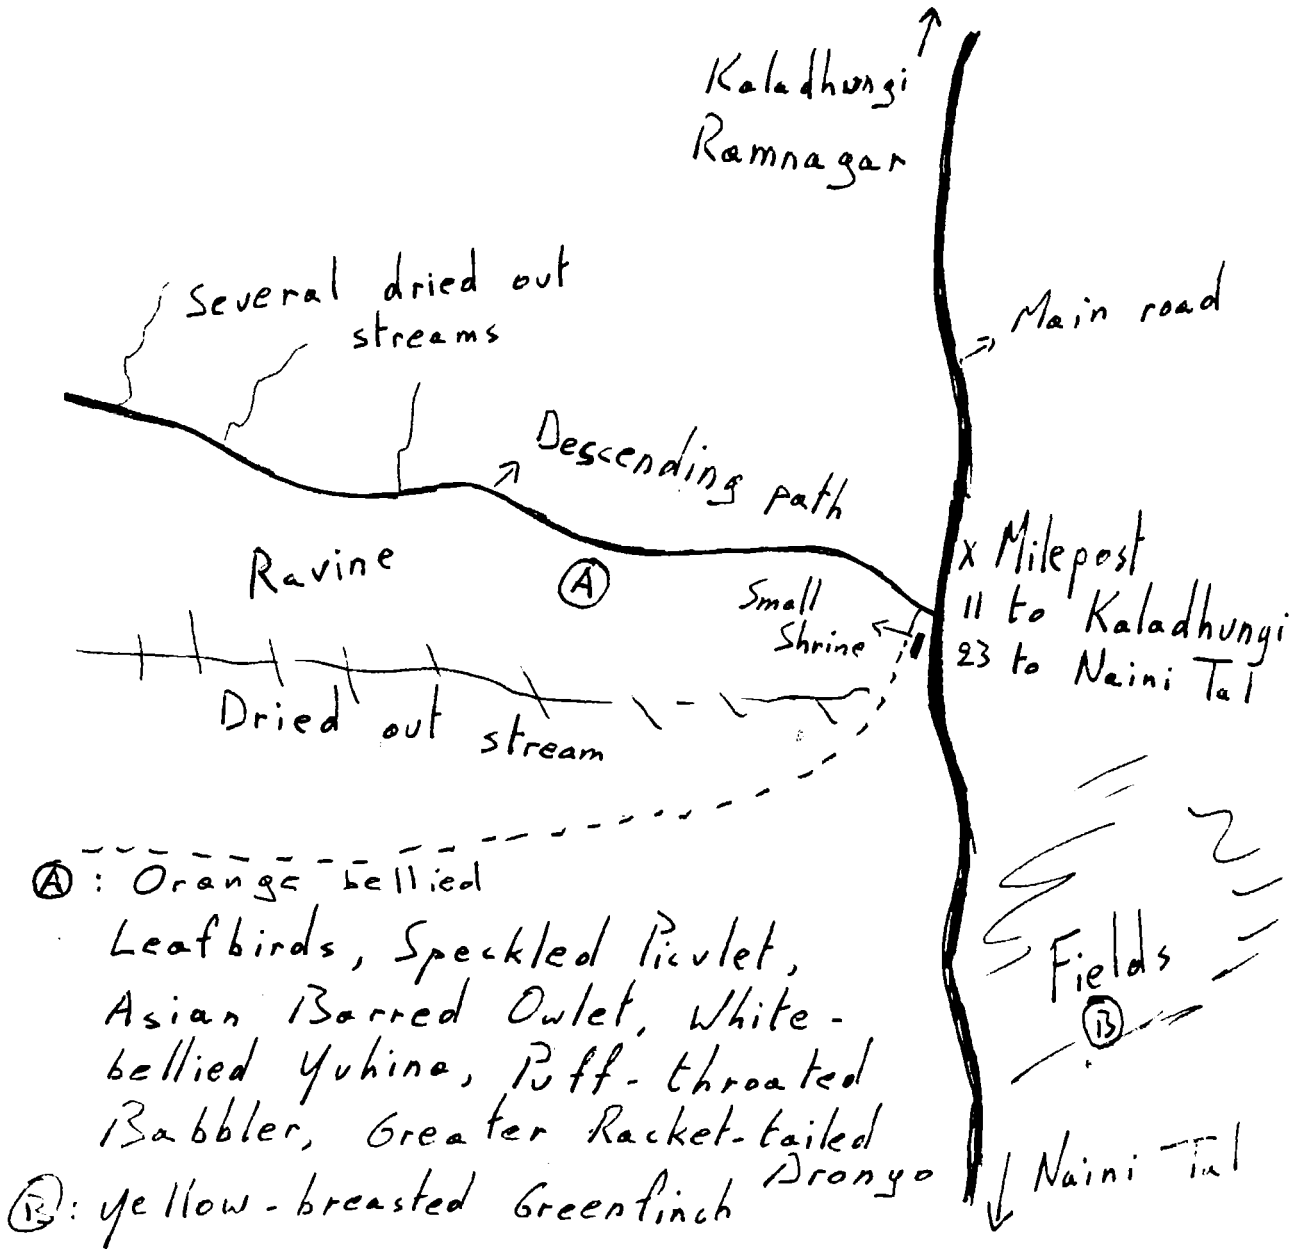 Kaladhungi
Ramnagar
Several dried out
streams
Main road
Descending path
Ravine
A
Small
Shrine
x Milepost
11 to Kaladhungi
23 to Naini Tal
Dried out stream
A : Orange bellied
Leafbirds, Speckled Piculet,
Asian Barred Owlet, White-
bellied Yuhina, Puff-throated
Babbler, Greater Racket-tailed
Drongo
B : yellow-breasted Greenfinch
Fields
B
Naini Tal